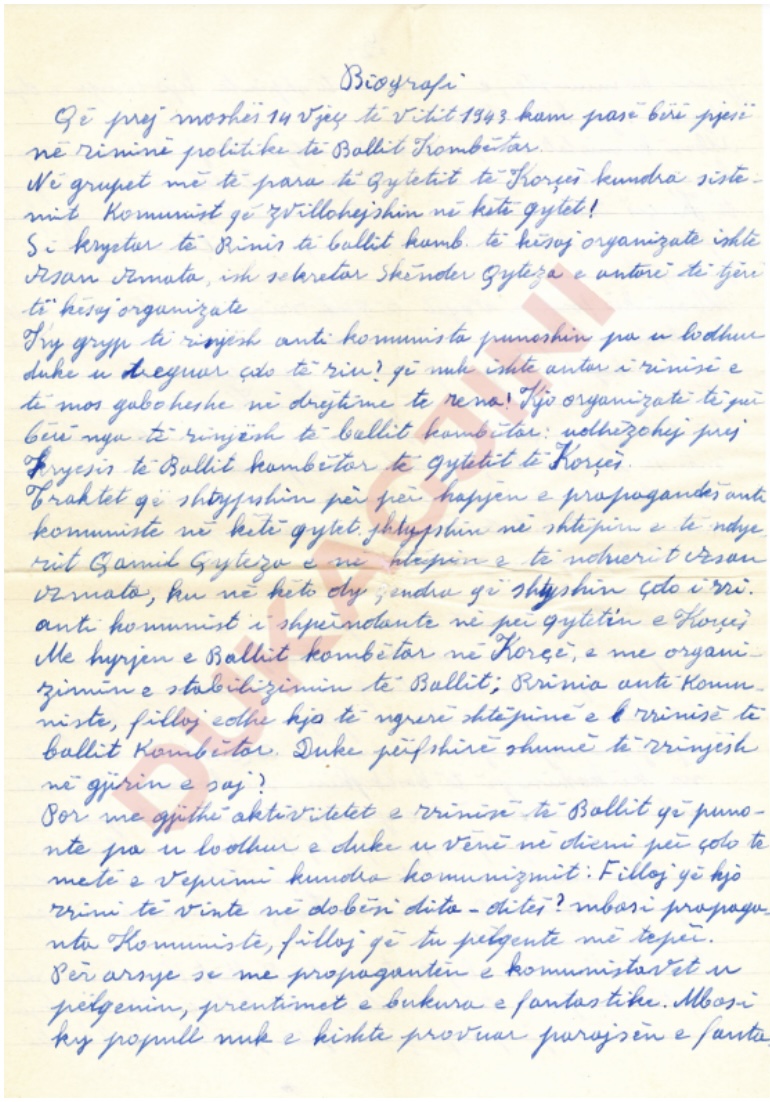 Biografi
Që prej moshës 14 vjeç të vitit 1943 kam pasë bërë pjesë
në rininë politike të Ballit Kombëtar.
Në grupet më të para të Qytetit të Korçës kundra siste-
mit Komunist që zvillohejshin në këtë qytet!
Si kryetar të Rinis të ballit komb. të kësaj organizate ishte
ish sekretar Skënder Qyteza e antarë të tjerë
të kësaj organizate
Ky gryp të rinjësh anti komunista punoshin pa u lodhur
duke u treguar çdo të riu? që nuk ishte antar i rinisë e
të mos gaboheshe në drejtime te rena! Kjo organizatë të për
bërë nga të rinjësh të ballit kombëtar: udhëzohej prej
Kryesis të Ballit kombëtar të qytetit të Korçës.
Traktet që shtypshin për për hapjen e propagandës anti
komuniste në këtë qytet. shtypshin në shtëpin e të ndye-
rit Qamil Qyteza e në shtëpin e të nduerit
ku në këto dy qendra që shtyshin çdo i rri.
anti komunist i shpëindante në për qytetin e Korçës
Me hyrjen e Ballit kombëtar në Korçë, e me organi-
zimin e stabilizimin të Ballit; Rrinia anti Komu-
niste, filloj edhe kjo të ngrerë shtëpinë e rrinisë të
ballit Kombëtar. Duke përfshirë shumë të rrinjësh
në gjirin e saj?
Por me gjithë aktivitetet e rrinisë të Ballit që puno-
nte pa u lodhur e duke u vënë në dieni për çdo te
metë e veprimi kundra komunizmit: Filloj që kjo
rrini të vinte në dobësi dita-ditës? mbasi propaga-
nta Komuniste, filloj që tu pëlqente më tepër.
Për arsye se me propagantën e komunistavet u
pëlqenin, premtimet e bukura e fantastike. Mbasi
ky popull nuk e kishte provuar parajsën e fanta
DUKAGJINI